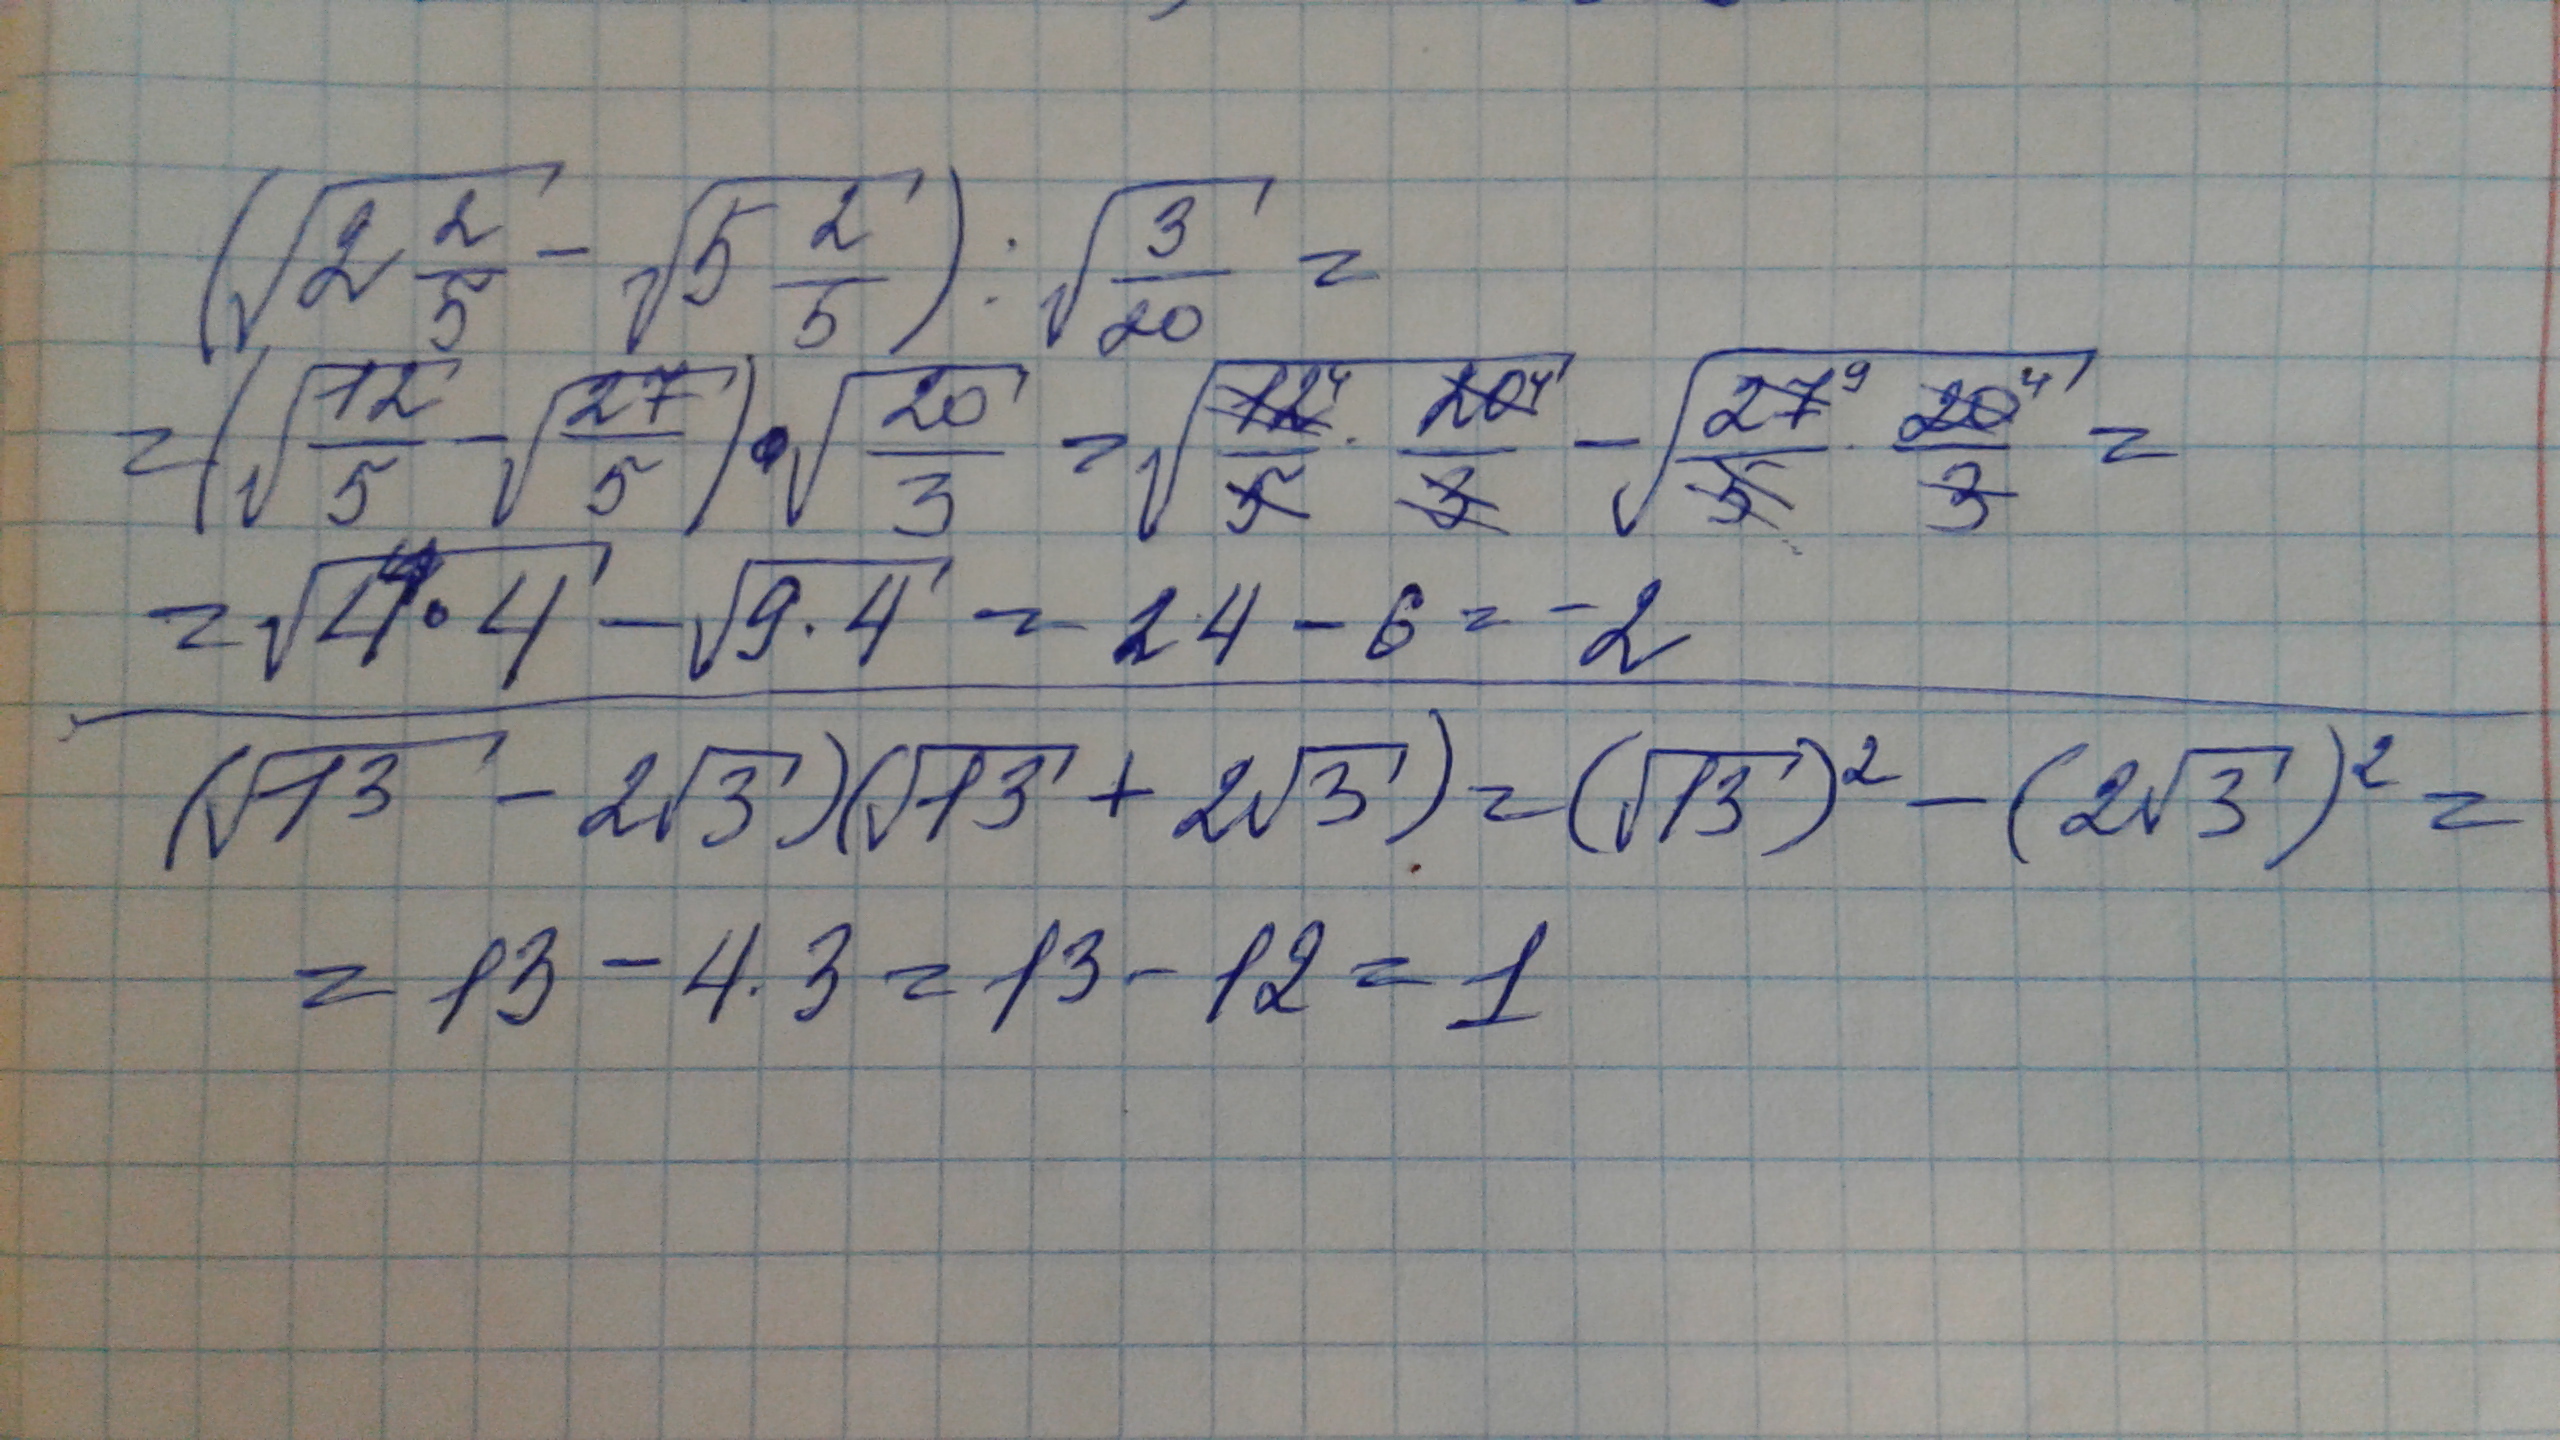 (√(2 2/5) - √(5 2/5)) : √(3/20) =
= (√(12/5) - √(27/5)) • √(20/3) = √(12⁴/5 · 20⁴/3) - √(27⁹/5 · 20⁴/3) =
= √(4 • 4) - √(9 · 4) = 24 - 6 = -2
(√13 - 2√3)(√13 + 2√3) = (√13)² - (2√3)² =
= 13 - 4 · 3 = 13 - 12 = 1